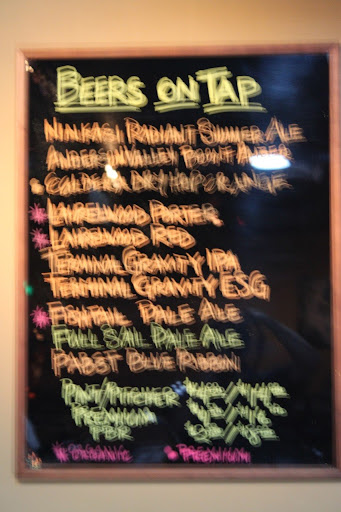 BEERS ON TAP
NINKASI RADIANT SUMMER ALE
ANDERSON VALLEY POINT AMBER
CALDERA DRY HOP ORANGE
* LAURELWOOD PORTER
* LAURELWOOD RED
TERMINAL GRAVITY IPA
TERMINAL GRAVITY ESG
* FISHTAIL PALE ALE
FULL SAIL PALE ALE
PABST BLUE RIBBON
PINT/PITCHER
PREMIUM
PBR
* ORGANIC • PREMIUM